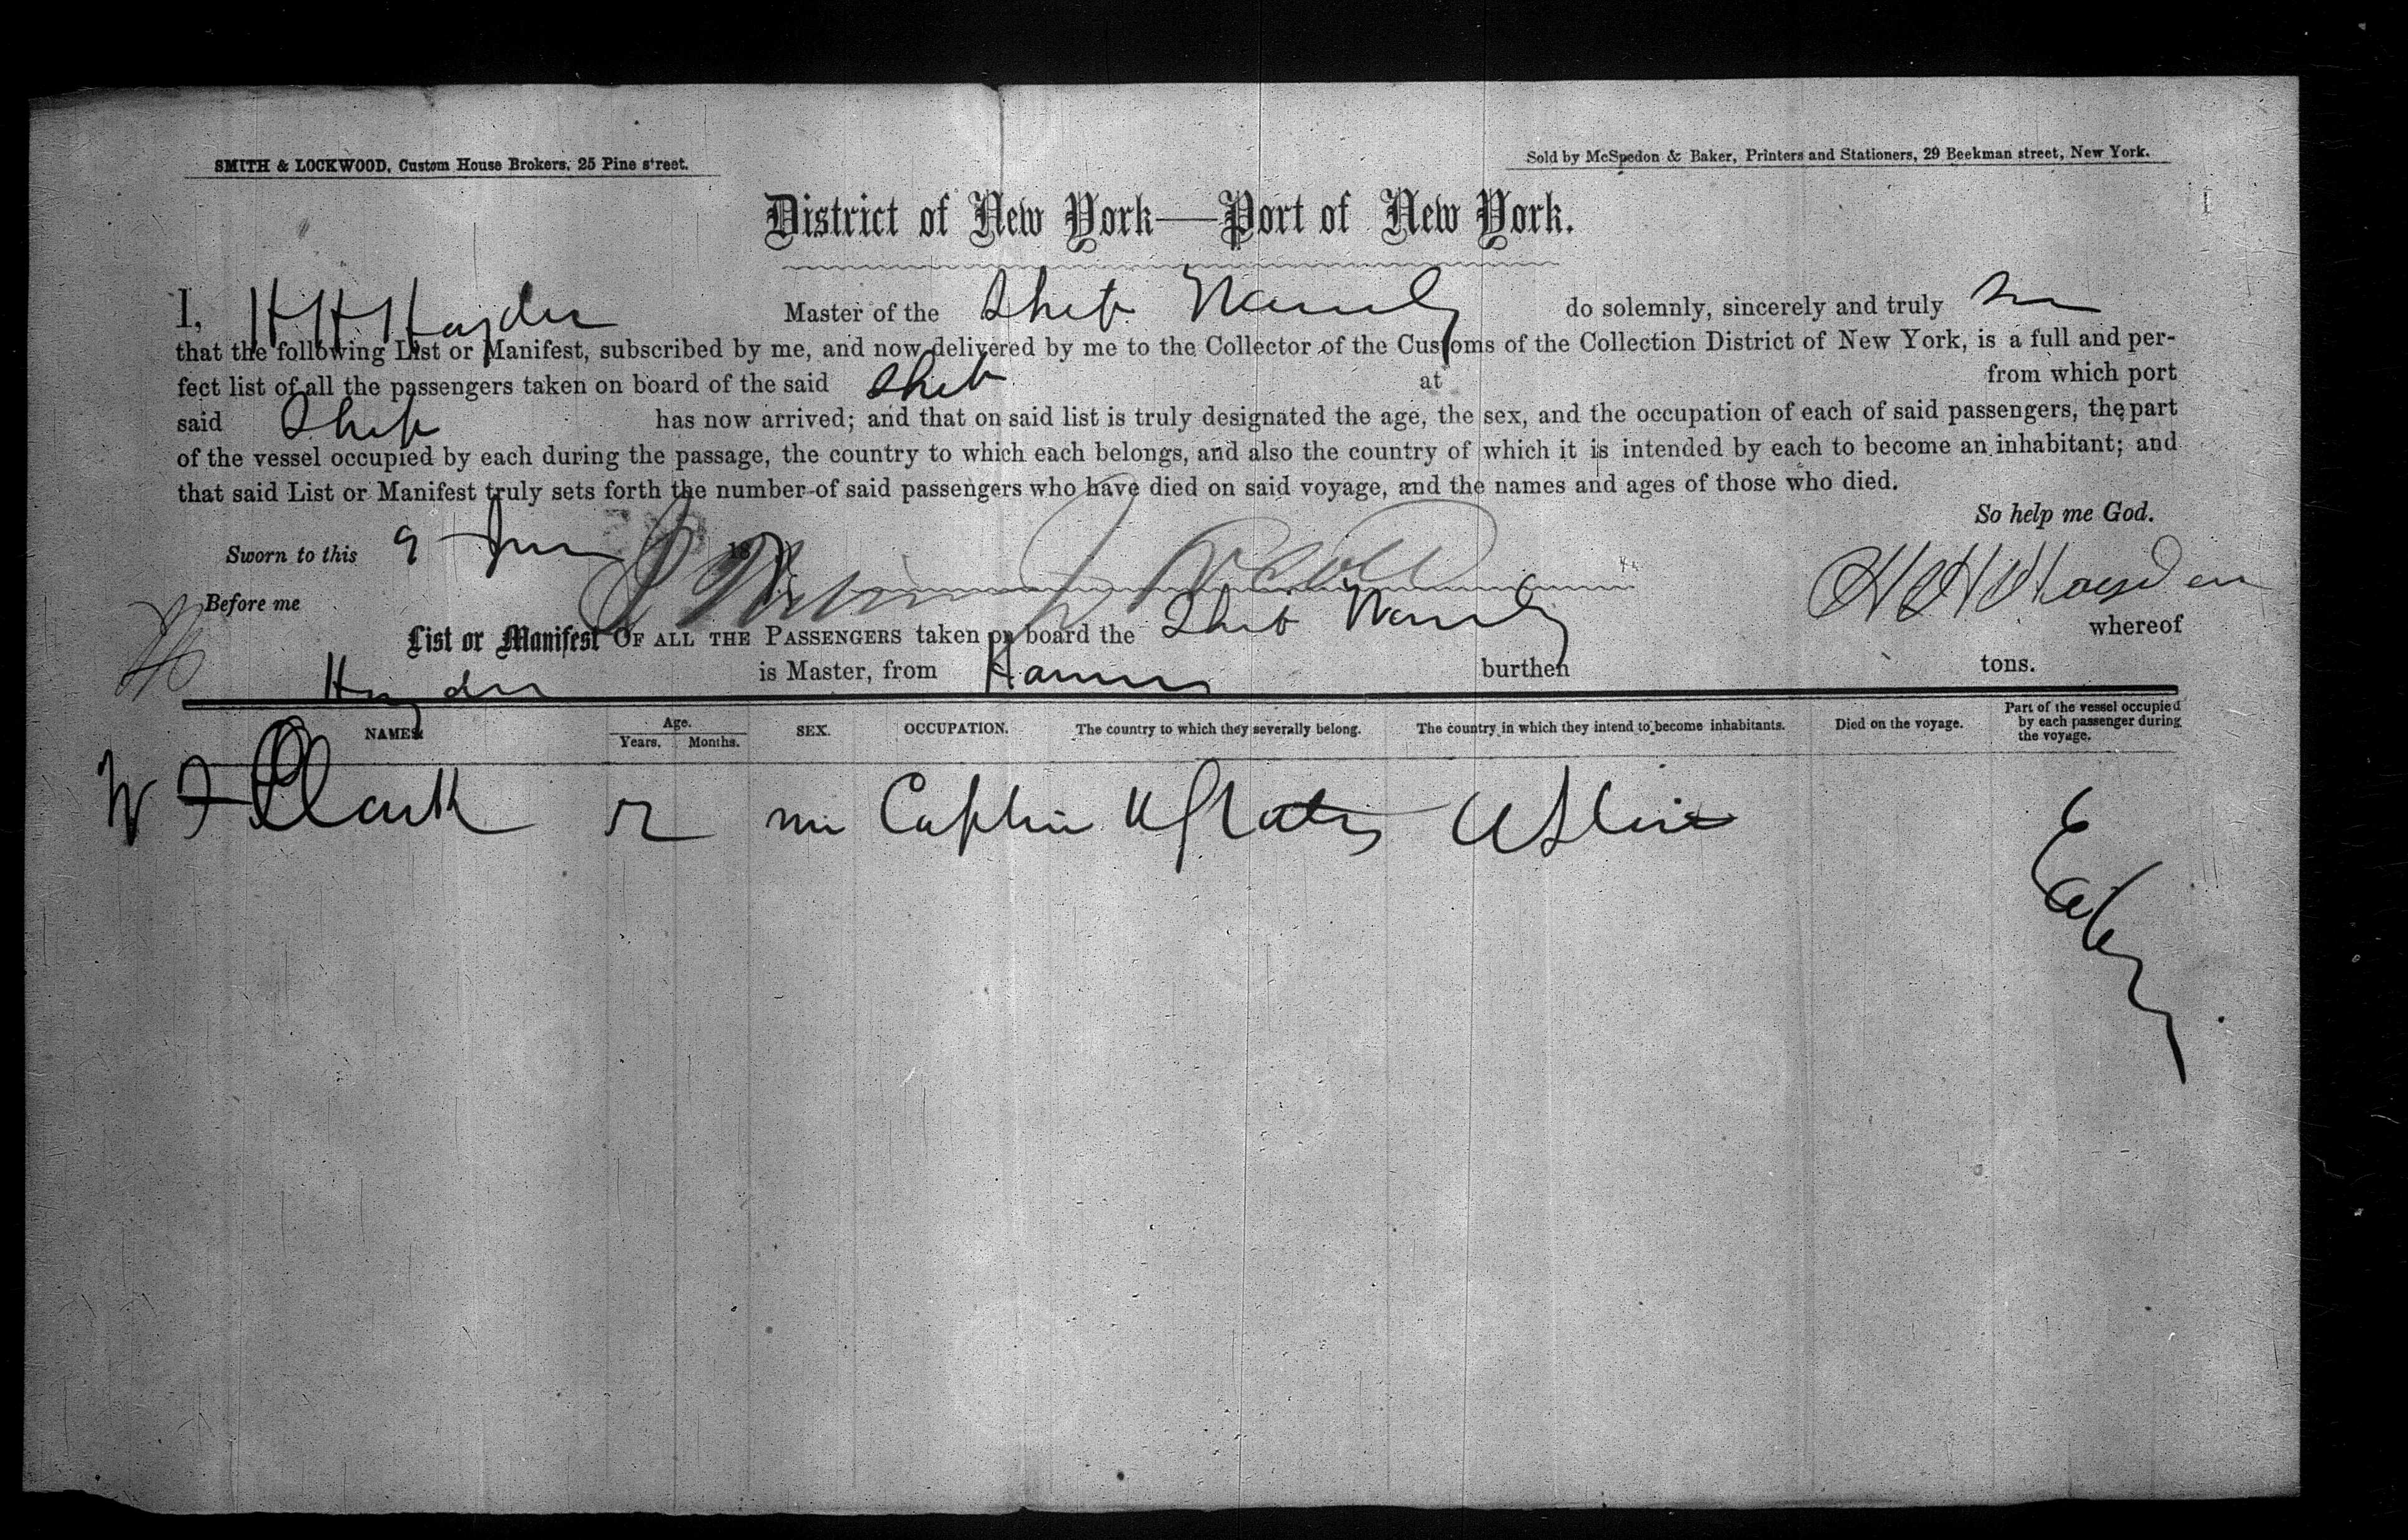 SMITH & LOCKWOOD, Custom House Brokers, 25 Pine street.
Sold by McSpedon & Baker, Printers and Stationers, 29 Beekman street, New York.
District of New York—Port of New York.
I, H H Hayden Master of the do solemnly, sincerely and truly
that the following List or Manifest, subscribed by me, and now delivered by me to the Collector of the Customs of the Collection District of New York, is a full and per-
fect list of all the passengers taken on board of the said at from which port
said has now arrived; and that on said list is truly designated the age, the sex, and the occupation of each of said passengers, the part
of the vessel occupied by each during the passage, the country to which each belongs, and also the country of which it is intended by each to become an inhabitant; and
that said List or Manifest truly sets forth the number of said passengers who have died on said voyage, and the names and ages of those who died.
So help me God.
Sworn to this 9 18
Before me
List or Manifest OF ALL THE PASSENGERS taken on board the whereof
Hayden is Master, from burthen tons.
NAMES Age. Years. Months. SEX. OCCUPATION. The country to which they severally belong. The country in which they intend to become inhabitants. Died on the voyage. Part of the vessel occupied by each passenger during the voyage.
Clark Captain U States